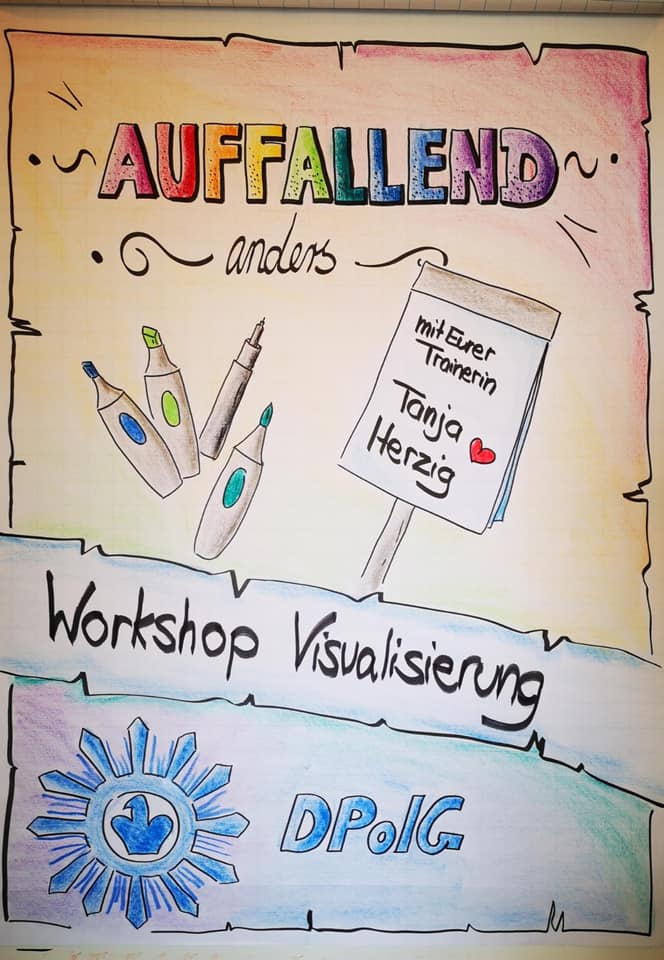 AUFFALLEND
anders
mit Eurer
Trainerin
Tanja
Herzig
Workshop Visualisierung
DPolG